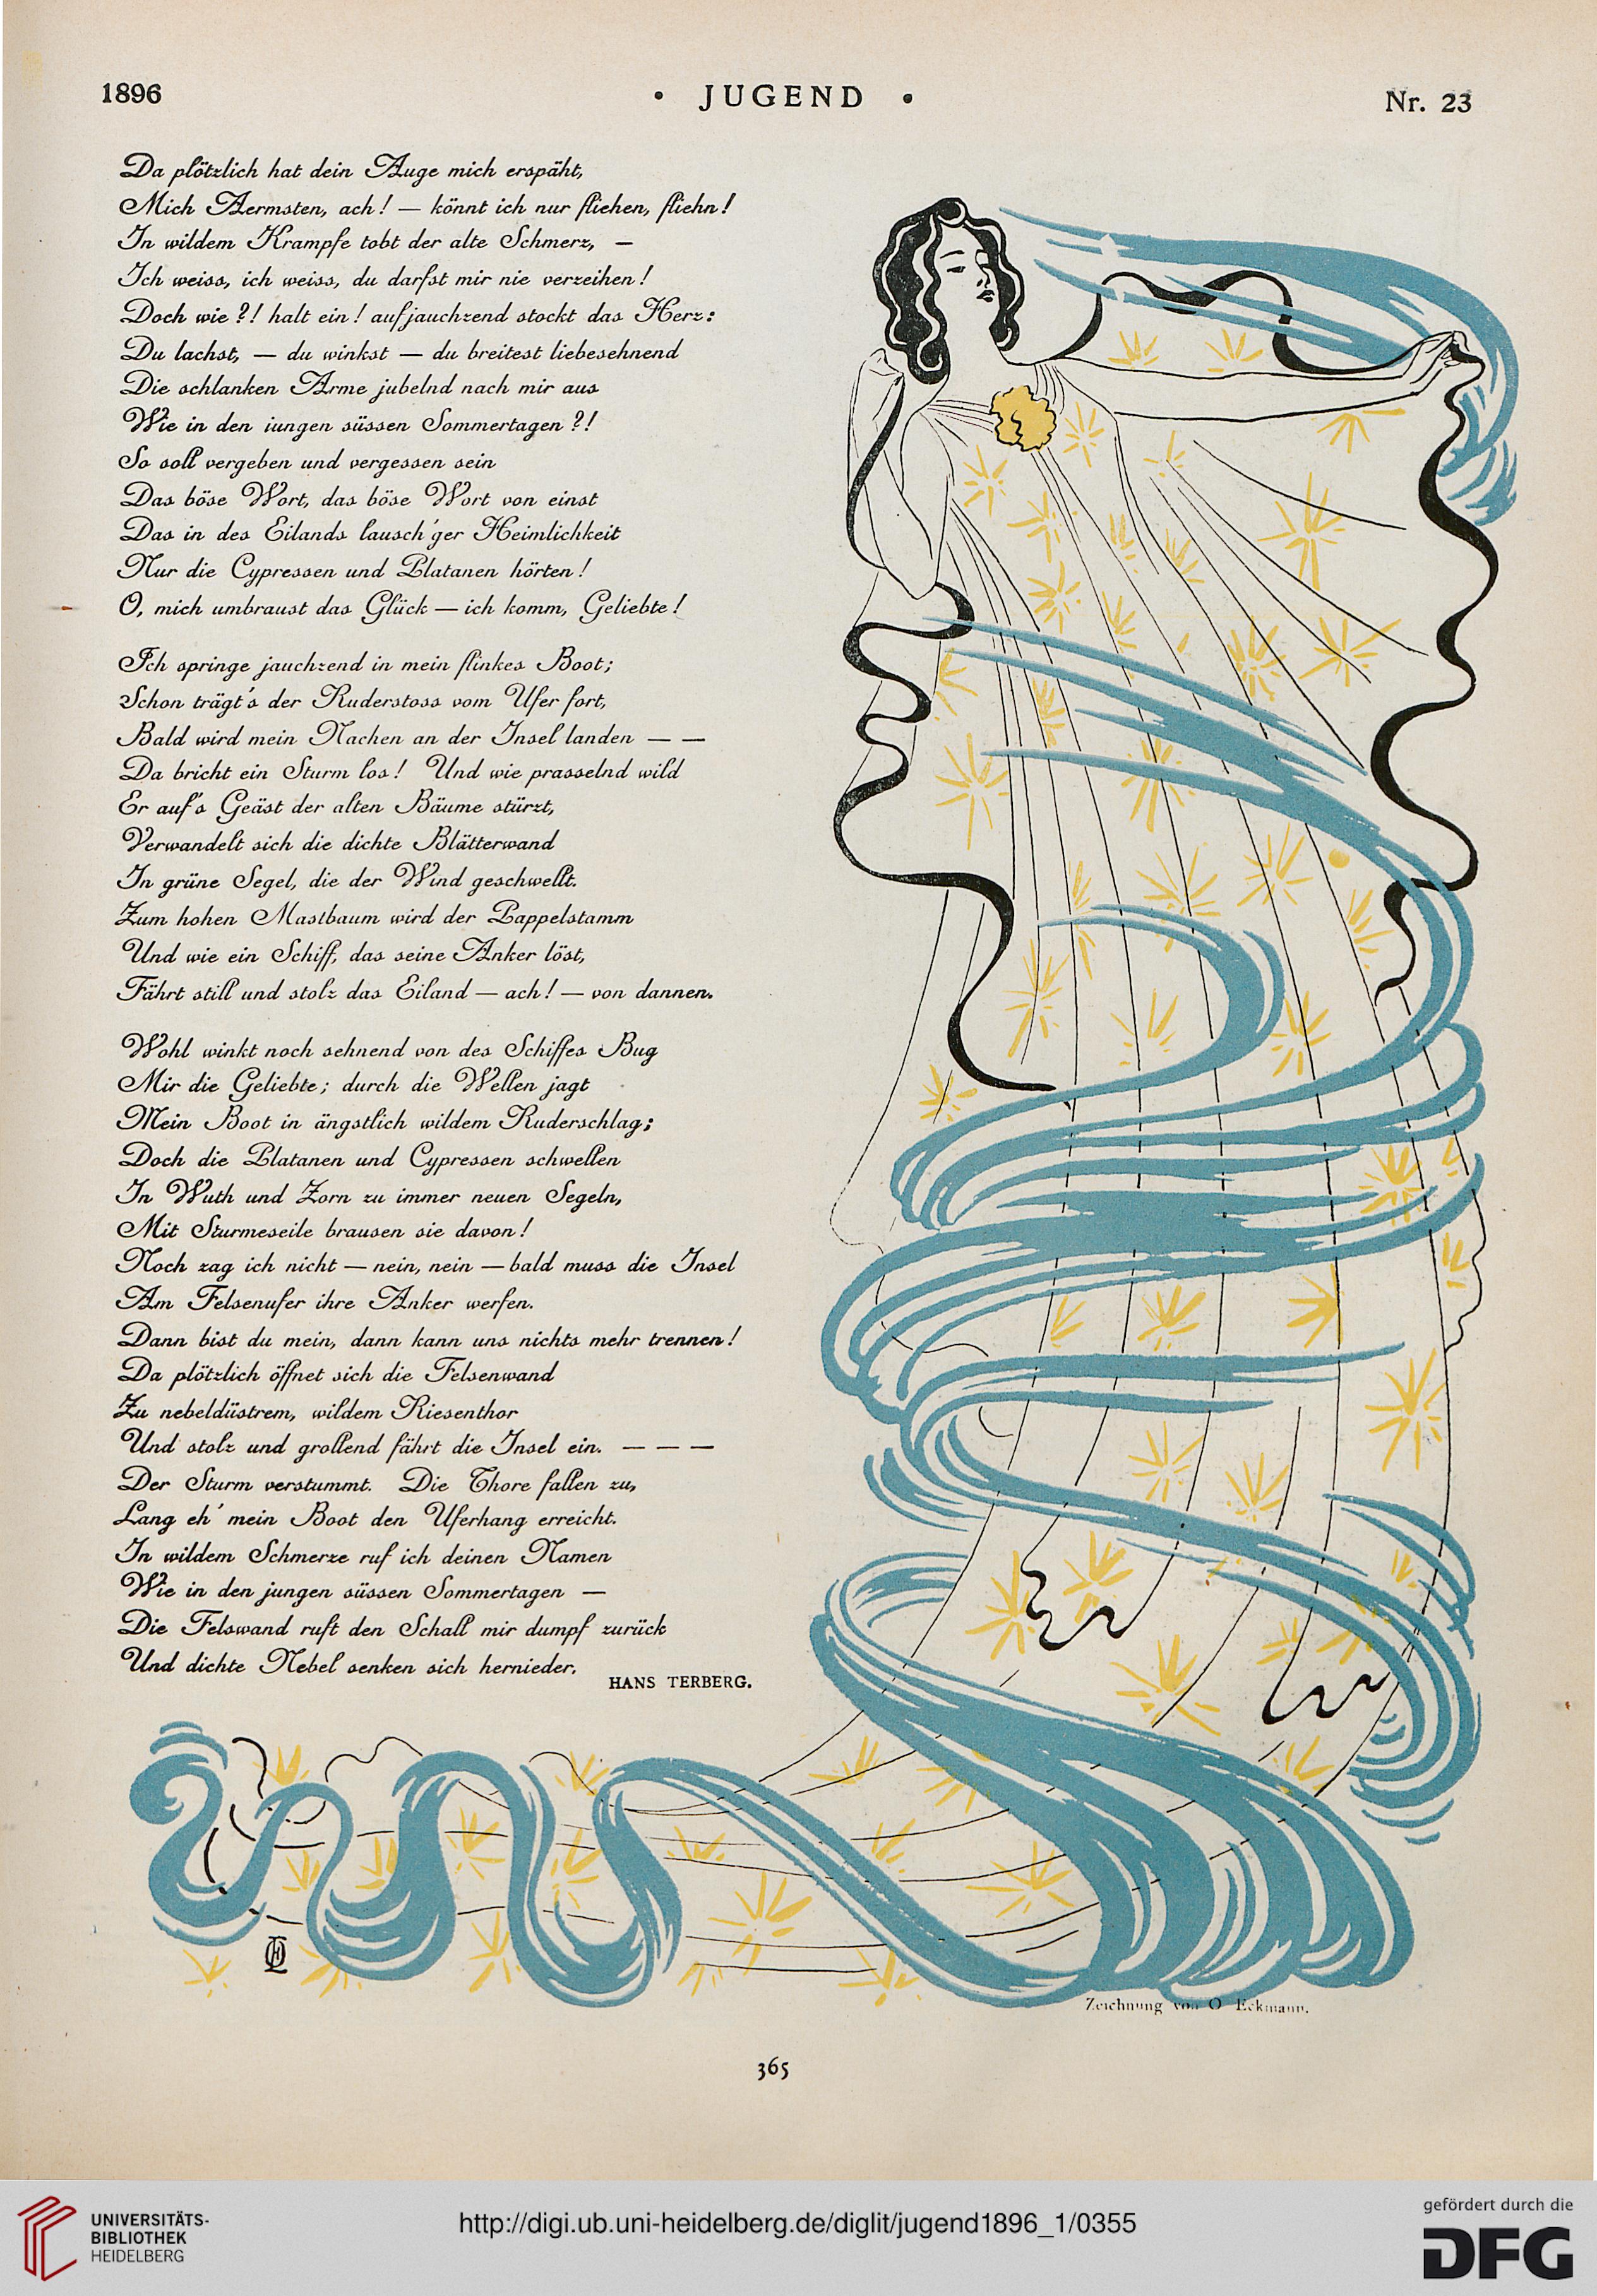 1896
• JUGEND •
Nr. 23
Da plötzlich hat dein Auge mich erspäht,
Mich Aermsten, ach! — könnt ich nur fliehen, fliehn!
In wildem Krampfe tobt der alte Schmerz, —
Ich weiss, ich weiss, du darfst mir nie verzeihen!
Doch wie?! halt ein! aufjauchzend stockt das Herz:
Du lachst, — du winkst — du breitest liebesehnend
Die schlanken Arme jubelnd nach mir aus
Wie in den iungen süssen Sommertagen?!
So soll vergeben und vergessen sein
Das böse Wort, das böse Wort von einst
Das in des Eilands lausch'ger Heimlichkeit
Nur die Cypressen und Platanen hörten!
O, mich umbraust das Glück — ich komm, Geliebte!
Ich springe jauchzend in mein flinkes Boot;
Schon trägt's der Ruderstoss vom Ufer fort,
Bald wird mein Nachen an der Insel landen — —
Da bricht ein Sturm los! Und wie prasselnd wild
Er auf's Geäst der alten Bäume stürzt,
Verwandelt sich die dichte Blätterwand
In grüne Segel, die der Wind geschwellt.
Zum hohen Mastbaum wird der Pappelstamm
Und wie ein Schiff, das seine Anker löst,
Fährt still und stolz das Eiland — ach! — von dannen.
Wohl winkt noch sehnend von des Schiffes Bug
Mir die Geliebte; durch die Wellen jagt
Mein Boot in ängstlich wildem Ruderschlag;
Doch die Platanen und Cypressen schwellen
In Wuth und Zorn zu immer neuen Segeln,
Mit Sturmeseile brausen sie davon!
Noch zag ich nicht — nein, nein — bald muss die Insel
Am Felsenufer ihre Anker werfen.
Dann bist du mein, dann kann uns nichts mehr trennen!
Da plötzlich öffnet sich die Felsenwand
Zu nebeldüstrem, wildem Riesenthor
Und stolz und grollend fährt die Insel ein. — — —
Der Sturm verstummt. Die Thore fallen zu,
Lang eh' mein Boot den Uferhang erreicht.
In wildem Schmerze ruf ich deinen Namen
Wie in den jungen süssen Sommertagen —
Die Felswand ruft den Schall mir dumpf zurück
Und dichte Nebel senken sich hernieder.
HANS TERBERG.
Zeichnung von O Eckmann.
365
UNIVERSITÄTS-
BIBLIOTHEK
HEIDELBERG
http://digi.ub.uni-heidelberg.de/diglit/jugend1896_1/0355
gefördert durch die
DFG